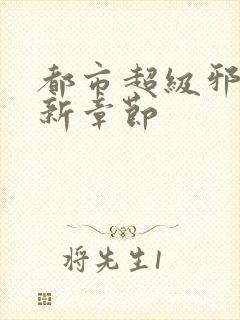 都市超级邪
新章节
将先生1